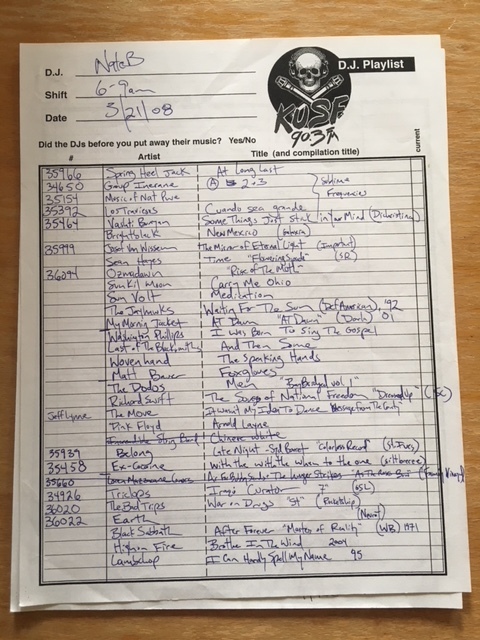 D.J. NateB
D.J. Playlist
Shift 6-9am
Date 3/21/08
KUSF
90.3 FM
Did the DJs before you put away their music? Yes/No
# Artist Title (and compilation title) current
35966 Spring Heel Jack At Long Last
34650 Group Inerane A 2:3 Sublime
35154 Music of Nat Pwe Frequencies
35392 Los Tropicas Cuando sea grande
35464 Vashti Bunyan Some Things Just Stick in Your Mind (Dicristina)
Brightblack New Mexico
35999 Jozef Van Wissem The Mirror of Eternal Light (Important)
Sean Hayes Time "Flowering Spade" (SR)
36094 Ozmadawn "Rise of The Moth"
Sun Kil Moon Carry Me Ohio
Son Volt Medication
The Jayhawks Waiting For The Sun (Def American) '92
My Morning Jacket At Dawn "At Dawn" (Darla) 01
Washington Phillips I was Born To Sing The Gospel
Last of The Blacksmiths And Then Some
Wovenhand The Speaking Hands
Matt Bauer Foxgloves
The Dodos Men
Richard Swift The Songs of National Freedom "Dressed Up" (SC)
Jeff Lynne The Move It wasn't My Idea To Dance "Message from The Country"
Pink Floyd Arnold Layne
Immediate String Band Chinese White
35939 Belong Late Night - Syd Barrett "Colorloss Record" (St. Ives)
35458 Ex-Cocaine With the with the when to the one (siltbreeze)
35660
34926 Triclops Iraqi Curator 7" (GSL)
36020 The Bad Trips War on Drugs "ST" (Rocketship)
36022 Earth
Black Sabbath After Forever "Master of Reality" (WB) 1971
High on Fire Brothe In The Wind 2004
Lambchop I Can Hardly Spell My Name 95